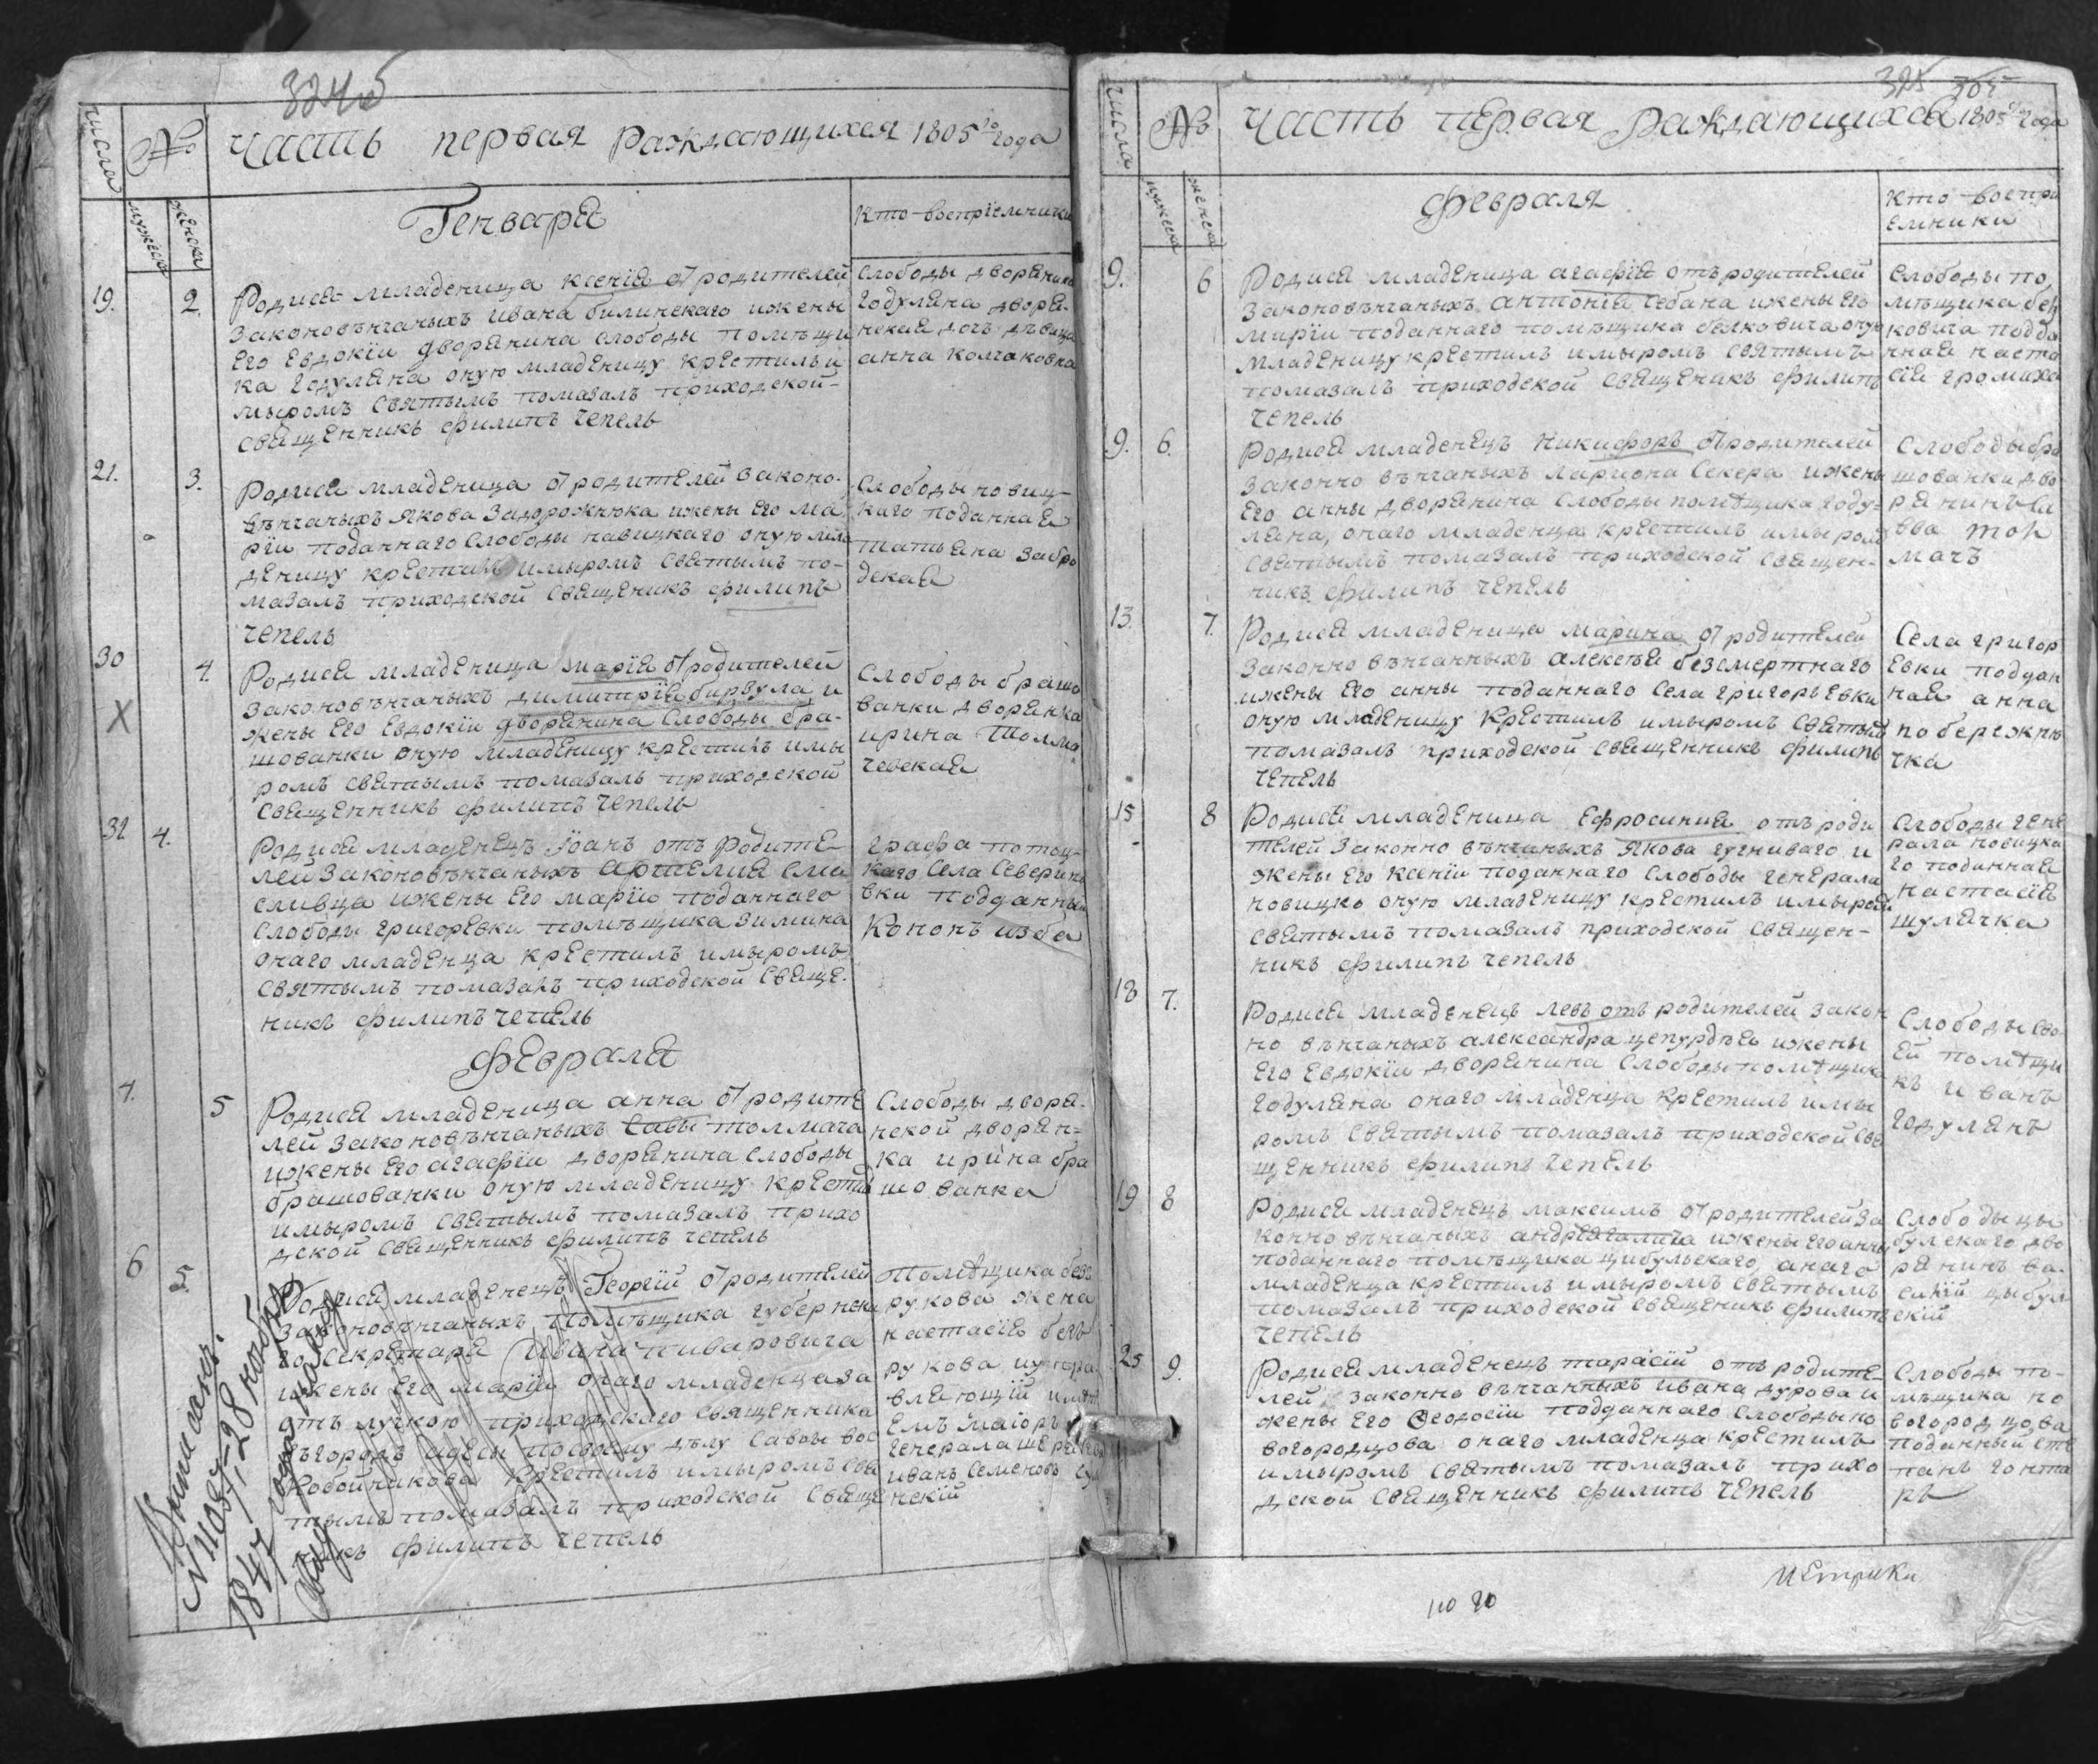 324б
числа
№
мужеска
женска
Часть первая раждающихся 1805го года
Генваря
Кто воспріемники
19.
2.
Родися младеница ксенія от родителей
законовѣнчаныхъ ивана билинскаго ижены
Его Евдокіи дворянина слободы помѣщи
ка годуляна оную младеницу крестилъ и
мыромъ святымъ помазалъ приходской
священникъ филипъ чепель
слободы дворянина
годуляна дворя-
нская дочъ дѣвица
анна колчаковна
21.
3.
Родися младеница от родителей законо-
вѣнчаныхъ якова задорожнюка ижены Его ма
ріи поданнаго слободы навицкаго оную мла
деницу крестилъ имыромъ святымъ по-
мазалъ приходской священикъ филипъ
чепель
слободы новиц-
каго поданная
татьяна забро
дская
30
4.
X
Родися младеница марія от родителей
законовѣнчаныхъ димитрія бирзула и
жены Его Евдокіи дворянина слободы бра-
шованки оную младеницу крестилъ имы
ромъ святымъ помазалъ приходской
священникъ филипъ чепель
слободы брашо
ванки дворянка
ирина толма
чевская
31
4.
Родися младенецъ Іоанъ отъ родите-
лей законовѣнчаныхъ артемия сма
сливца ижены Его маріи поданнаго
слободы григоревки помѣщика зимина
онаго младенца крестилъ имыромъ
святымъ помазалъ приходской свяще-
никъ филипъ чепель
графа потоц-
каго села северин
вки подданный
кононъ изба
февраля
4.
5
Родися младеница анна от родите
лей законовѣнчаныхъ савы толмача
ижены Его агафіи дворянина слободы
брашованки оную младеницу крестилъ
имыромъ святымъ помазалъ прихо
дской священникъ филипъ чепель
слободы дворя-
нской дворян=
ка ирина бра
шованка
6
5.
Родися младенецъ Георгій от родителей
законовѣнчаныхъ помѣщика губернска
го секретаря Ивана пиваровича
ижены Его маріи онаго младенца за
отъ лучкою приходскаго священника
въ городъ адесы посвоему дѣлу савы вос
кобойникова крестилъ имыромъ свя
тымъ помазалъ приходской свяще
никъ филипъ чепель
помѣщика безъ
рукова жена
настасія безъ
рукова иупра
вляющій имѣні
емъ маіоръ
генерала
иванъ семеновъ
нскій
Выписанъ.
1847 года 28 ноября
325 305
числа
№
мужеска
женска
Часть первая Раждающихся 1805го года
февраля
Кто воспрі
емники
9.
6
Родися младеница агафія отъ родителей
законовѣнчаныхъ антонія чебана ижены Его
миріи поданнаго помѣщика беяковича оную
младеницу крестилъ имыромъ святымъ
помазалъ приходской священикъ филипъ
чепель
слободы по
мѣщика бея
ковича подда
нная наста
сія громиха
9.
6.
Родися младенецъ никифоръ от родителей
законно вѣнчаныхъ лариона секера ижены
Его анны дворянина слободы помѣщика году=
ляна, онаго младенца крестилъ имыромъ
святымъ помазалъ приходской священ-
никъ филипъ чепель
слободы бра
шованки дво
рянинъ са
вва тол
мачъ
13.
7.
Родися младеница марина от родителей
законно вѣнчанныхъ алексѣя безсмертнаго
ижены Его анны поданнаго села григорьевки
оную младеницу крестилъ имыромъ святымъ
помазалъ приходской священникъ филипъ
чепель
села григор
евки поддан
ная анна
побережню
чка
15
8
Родися младеница Ефросиния отъ роди
телей законно вѣнчаныхъ якова гугниваго и
жены Его ксеніи поданнаго слободы генерала
новицко оную младеницу крестилъ имыромъ
святымъ помазалъ приходской священ-
никъ филипъ чепель
слободы гене
рала новицка
го поданная
настасія
шулячка
18
7.
Родися младенецъ левъ отъ родителей закон
но вѣнчаныхъ александра цепурдѣя ижены
Его Евдокіи дворянина слободы помѣщика
годуляна онаго младенца крестилъ имы
ромъ святымъ помазалъ приходской свя
щенникъ филипъ чепель
слободы сво
ей помѣщи
къ иванъ
годулянъ
19
8
Родися младенецъ максимъ от родителей за
конно вѣнчаныхъ андрея галига ижены Его анны
поданнаго помѣщика цибульскаго, онаго
младенца крестилъ имыромъ святымъ
помазалъ приходской священикъ филипъ
чепель
слободы цы
булскаго дво
рянинъ ва-
силій цыбул
скій
25
9.
Родися младенецъ тарасій отъ родите-
лей законно вѣнчанныхъ ивана дурова и
жены Его Ѳеодосіи подданнаго слободы но
вогородцова онаго младенца крестилъ
имыромъ святымъ помазалъ прихо
дской священникъ филипъ чепель
слободы по-
мѣщика но
вогородцова
поданный сте
панъ гонта
ръ
метрики